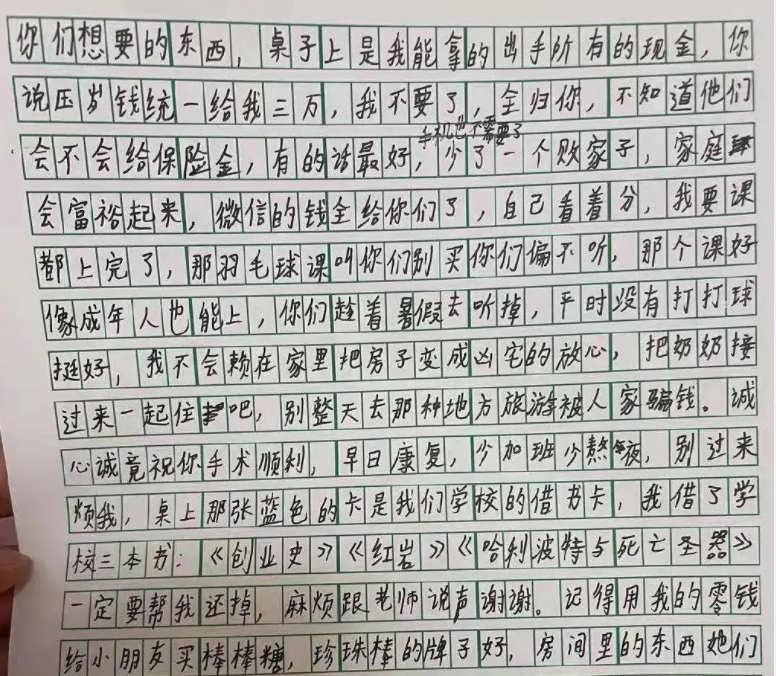 你们想要的东西，桌子上是我能拿的出手所有的现金，你
说压岁钱统一给我三万，我不要了，全归你，不知道他们
手机也不需要了
会不会给保险金，有的话最好，少了一个败家子，家庭
会富裕起来，微信的钱全给你们了，自己看着分，我要课
都上完了，那羽毛球课叫你们别买你们偏不听，那个课好
像成年人也能上，你们趁着暑假去听掉，平时没有打打球
挺好，我不会赖在家里把房子变成凶宅的放心，把奶奶接
过来一起住吧，别整天去那种地方旅游被人家骗钱。诚
心诚意祝你手术顺利，早日康复，少加班少熬夜，别过来
烦我，桌上那张蓝色的卡是我们学校的借书卡，我借了学
校三本书：《创业史》《红岩》《哈利波特与死亡圣器》
一定要帮我还掉，麻烦跟老师说声谢谢。记得用我的零钱
给小朋友买棒棒糖，珍珠棒的牌子好，房间里的东西她们